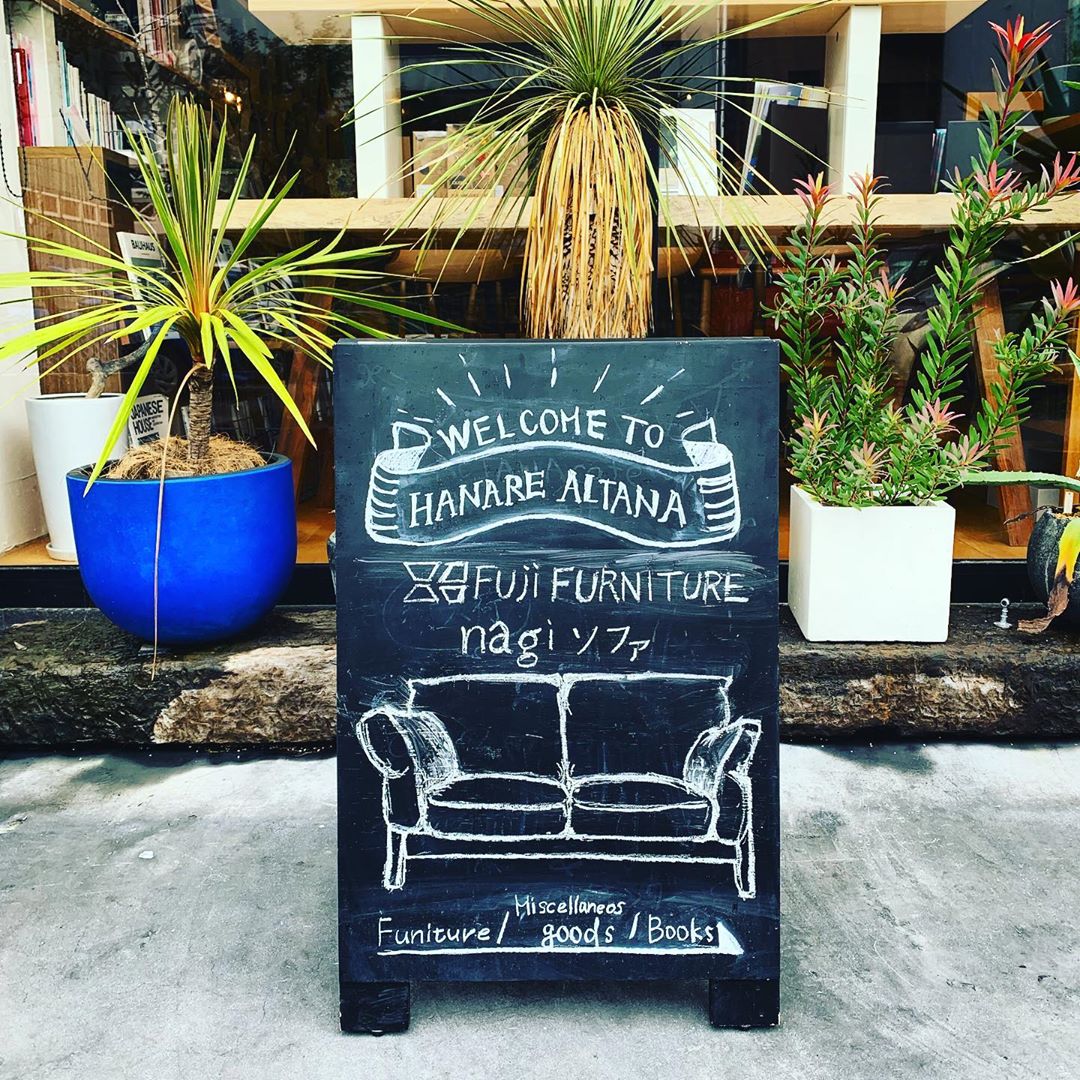 BAUHAUS
JAPANESE
HOUSE
WELCOME TO
HANARE ALTANA
FUJI FURNITURE
nagi ソファ
Miscellaneos
Funiture / goods / Books